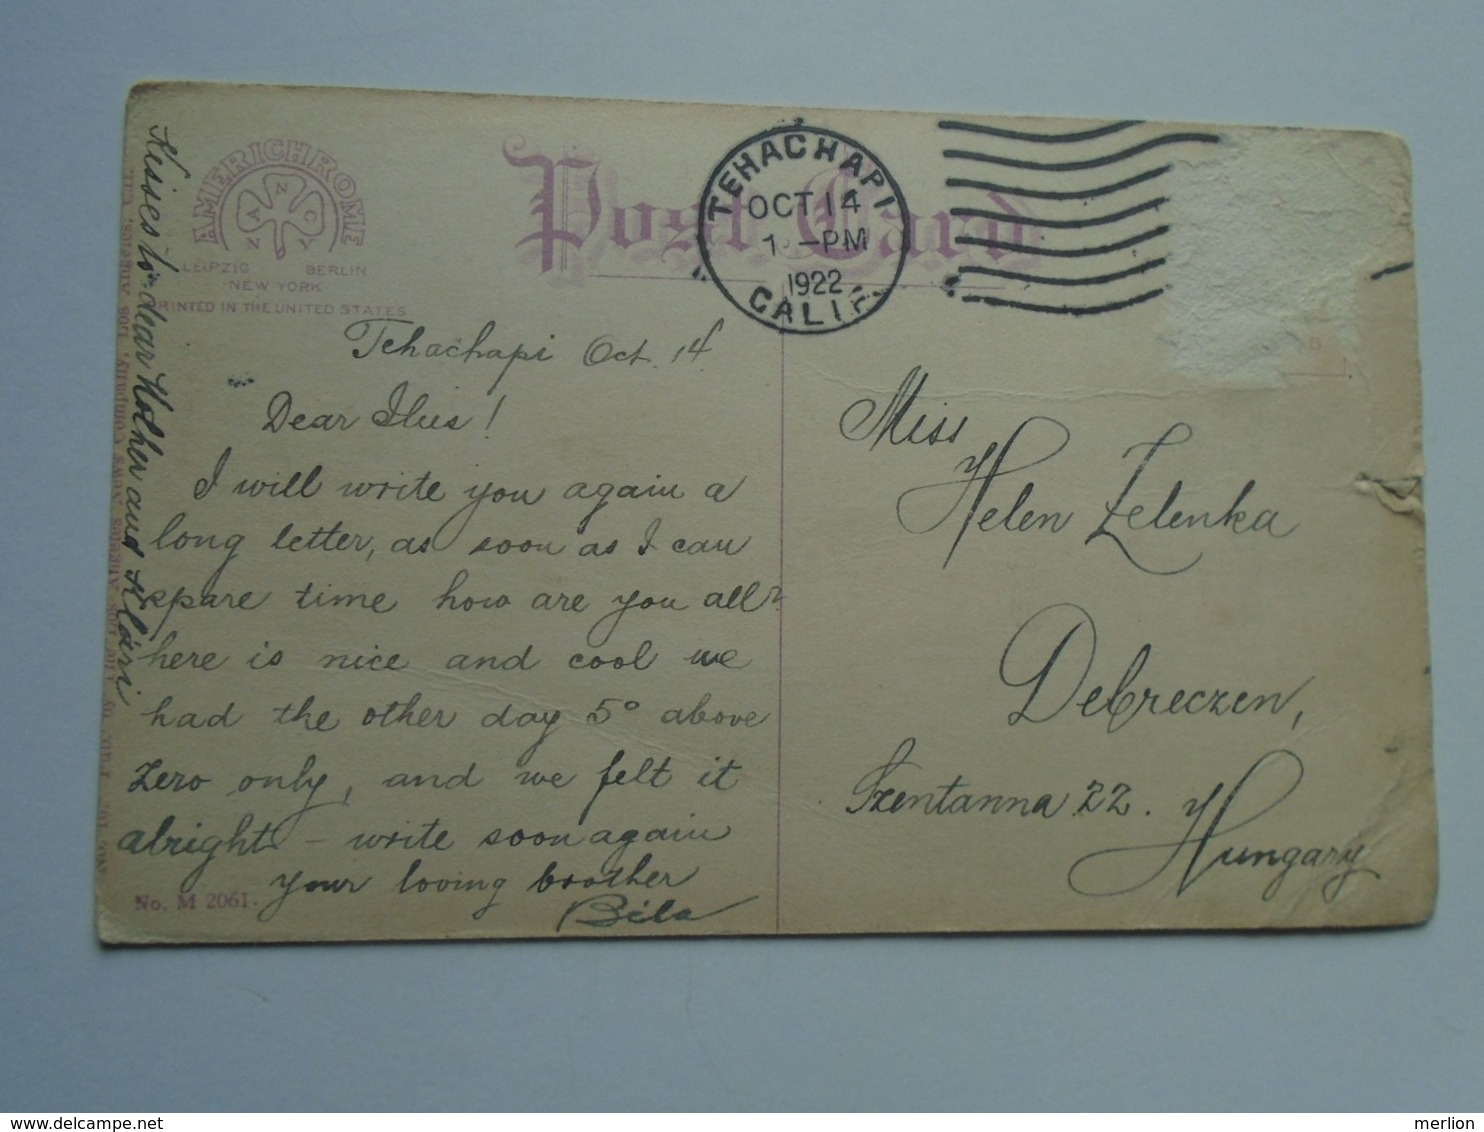 AMERICHROME
A N N C N Y
LEIPZIG BERLIN
NEW YORK
PRINTED IN THE UNITED STATES
Post Card
TEHACHAPI
OCT 14
-PM
1922
CALIF.
Tehachapi Oct. 14
Dear Ilus!
I will write you again a
long letter, as soon as I can
spare time how are you all?
here is nice and cool we
had the other day 5° above
zero only, and we felt it
alright – write soon again
your loving brother
Béla
Kisses to dear Mother and Klári
Pub. by The Los Angeles News Company, Los Angeles, Cal.
No. M 2061.
Miss
Helen Zelenka
Debreczen,
Szentanna 22.
Hungary
www.delcampe.net
merlion